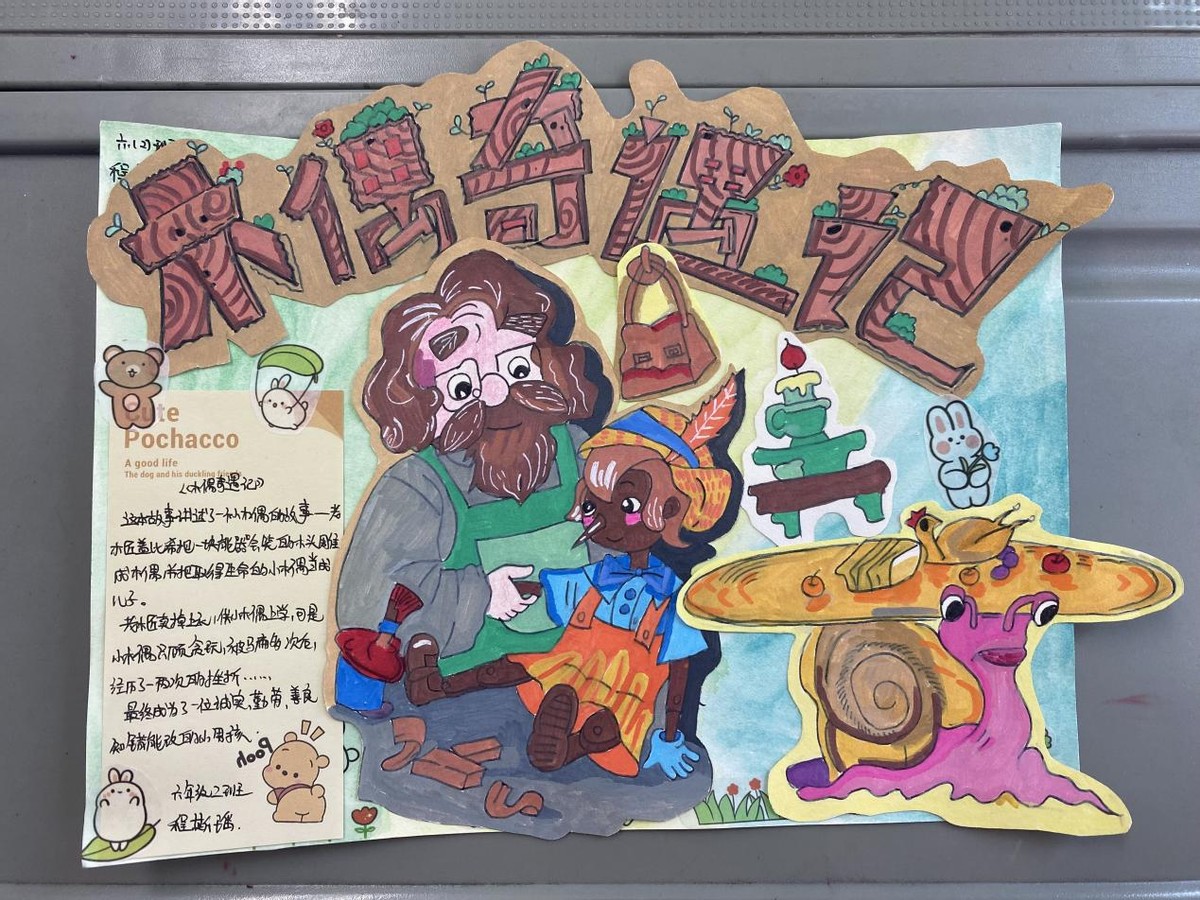 木偶奇遇记
六.(2)班
程
Cute
Pochacco
A good life
The dog and his duckling friends
《木偶奇遇记》
这本故事讲述了一个小木偶的故事——老
木匠盖比希把一块能哭会笑的木头雕
成木偶,并把取得生命的小木偶当成
儿子。
老木匠卖掉上衣,供小木偶上学,可是
小木偶只顾贪玩,
经历了一次次的挫折……
最终成为了一位诚实、勤劳、善良
知错能改的小男孩.
pooh
六年级(2)班
程